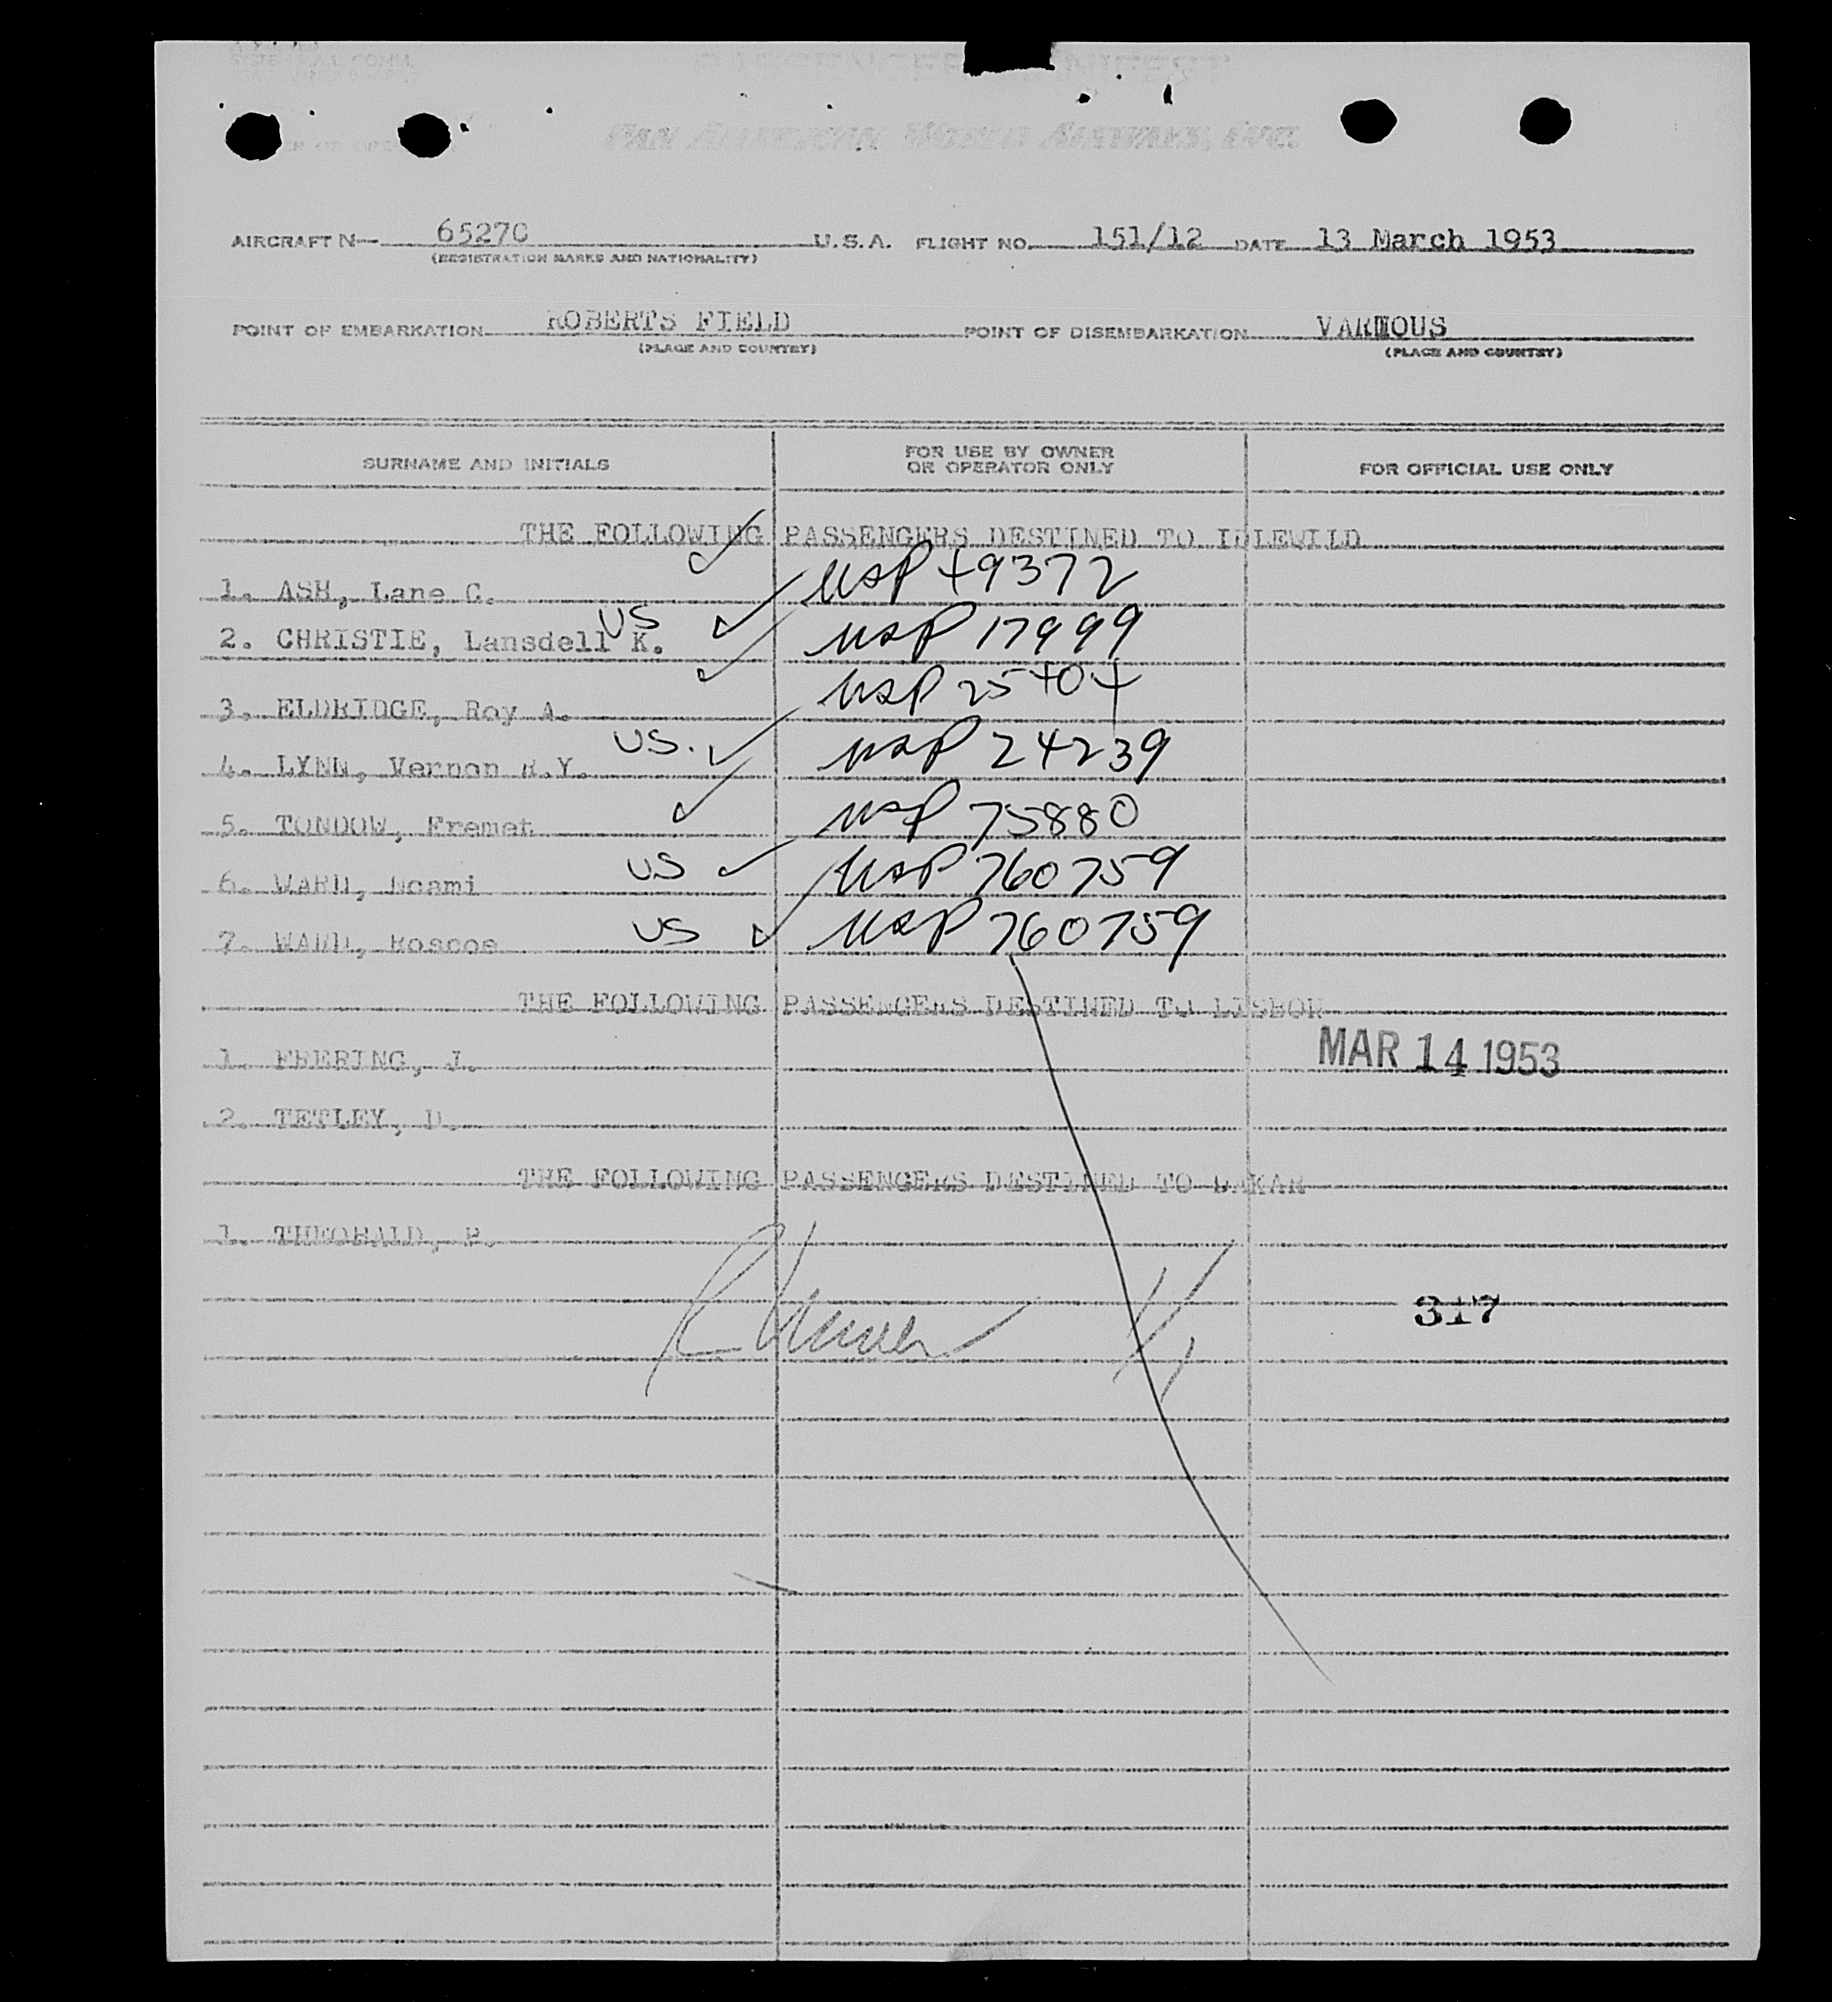 PASSENGER MANIFEST
PAN AMERICAN WORLD AIRWAYS, INC.
AIRCRAFT N— 6527C U.S.A. FLIGHT NO. 151/12 DATE 13 March 1953
(REGISTRATION MARKS AND NATIONALITY)
POINT OF EMBARKATION ROBERTS FIELD POINT OF DISEMBARKATION VARIOUS
(PLACE AND COUNTRY) (PLACE AND COUNTRY)
SURNAME AND INITIALS FOR USE BY OWNER OR OPERATOR ONLY FOR OFFICIAL USE ONLY
THE FOLLOWING PASSENGERS DESTINED TO IDLEWILD
1. ASH, Lane C. ✓ USP 49372
2. CHRISTIE, Lansdell K. US ✓ USP 17999
3. ELDRIDGE, Roy A. ✓ USP 25404
4. LYNN, Vernon R.Y. US. ✓ USP 24239
5. TONDOW, Fremet ✓ USP 75880
6. WARD, Noami US ✓ USP 760759
7. WARD, Roscoe US ✓ USP 760759
THE FOLLOWING PASSENGERS DESTINED TO LISBON
1. FEERING, J.
MAR 14 1953
2. TETLEY, D.
THE FOLLOWING PASSENGERS DESTINED TO DAKAR
1. THEOBALD, P.
317